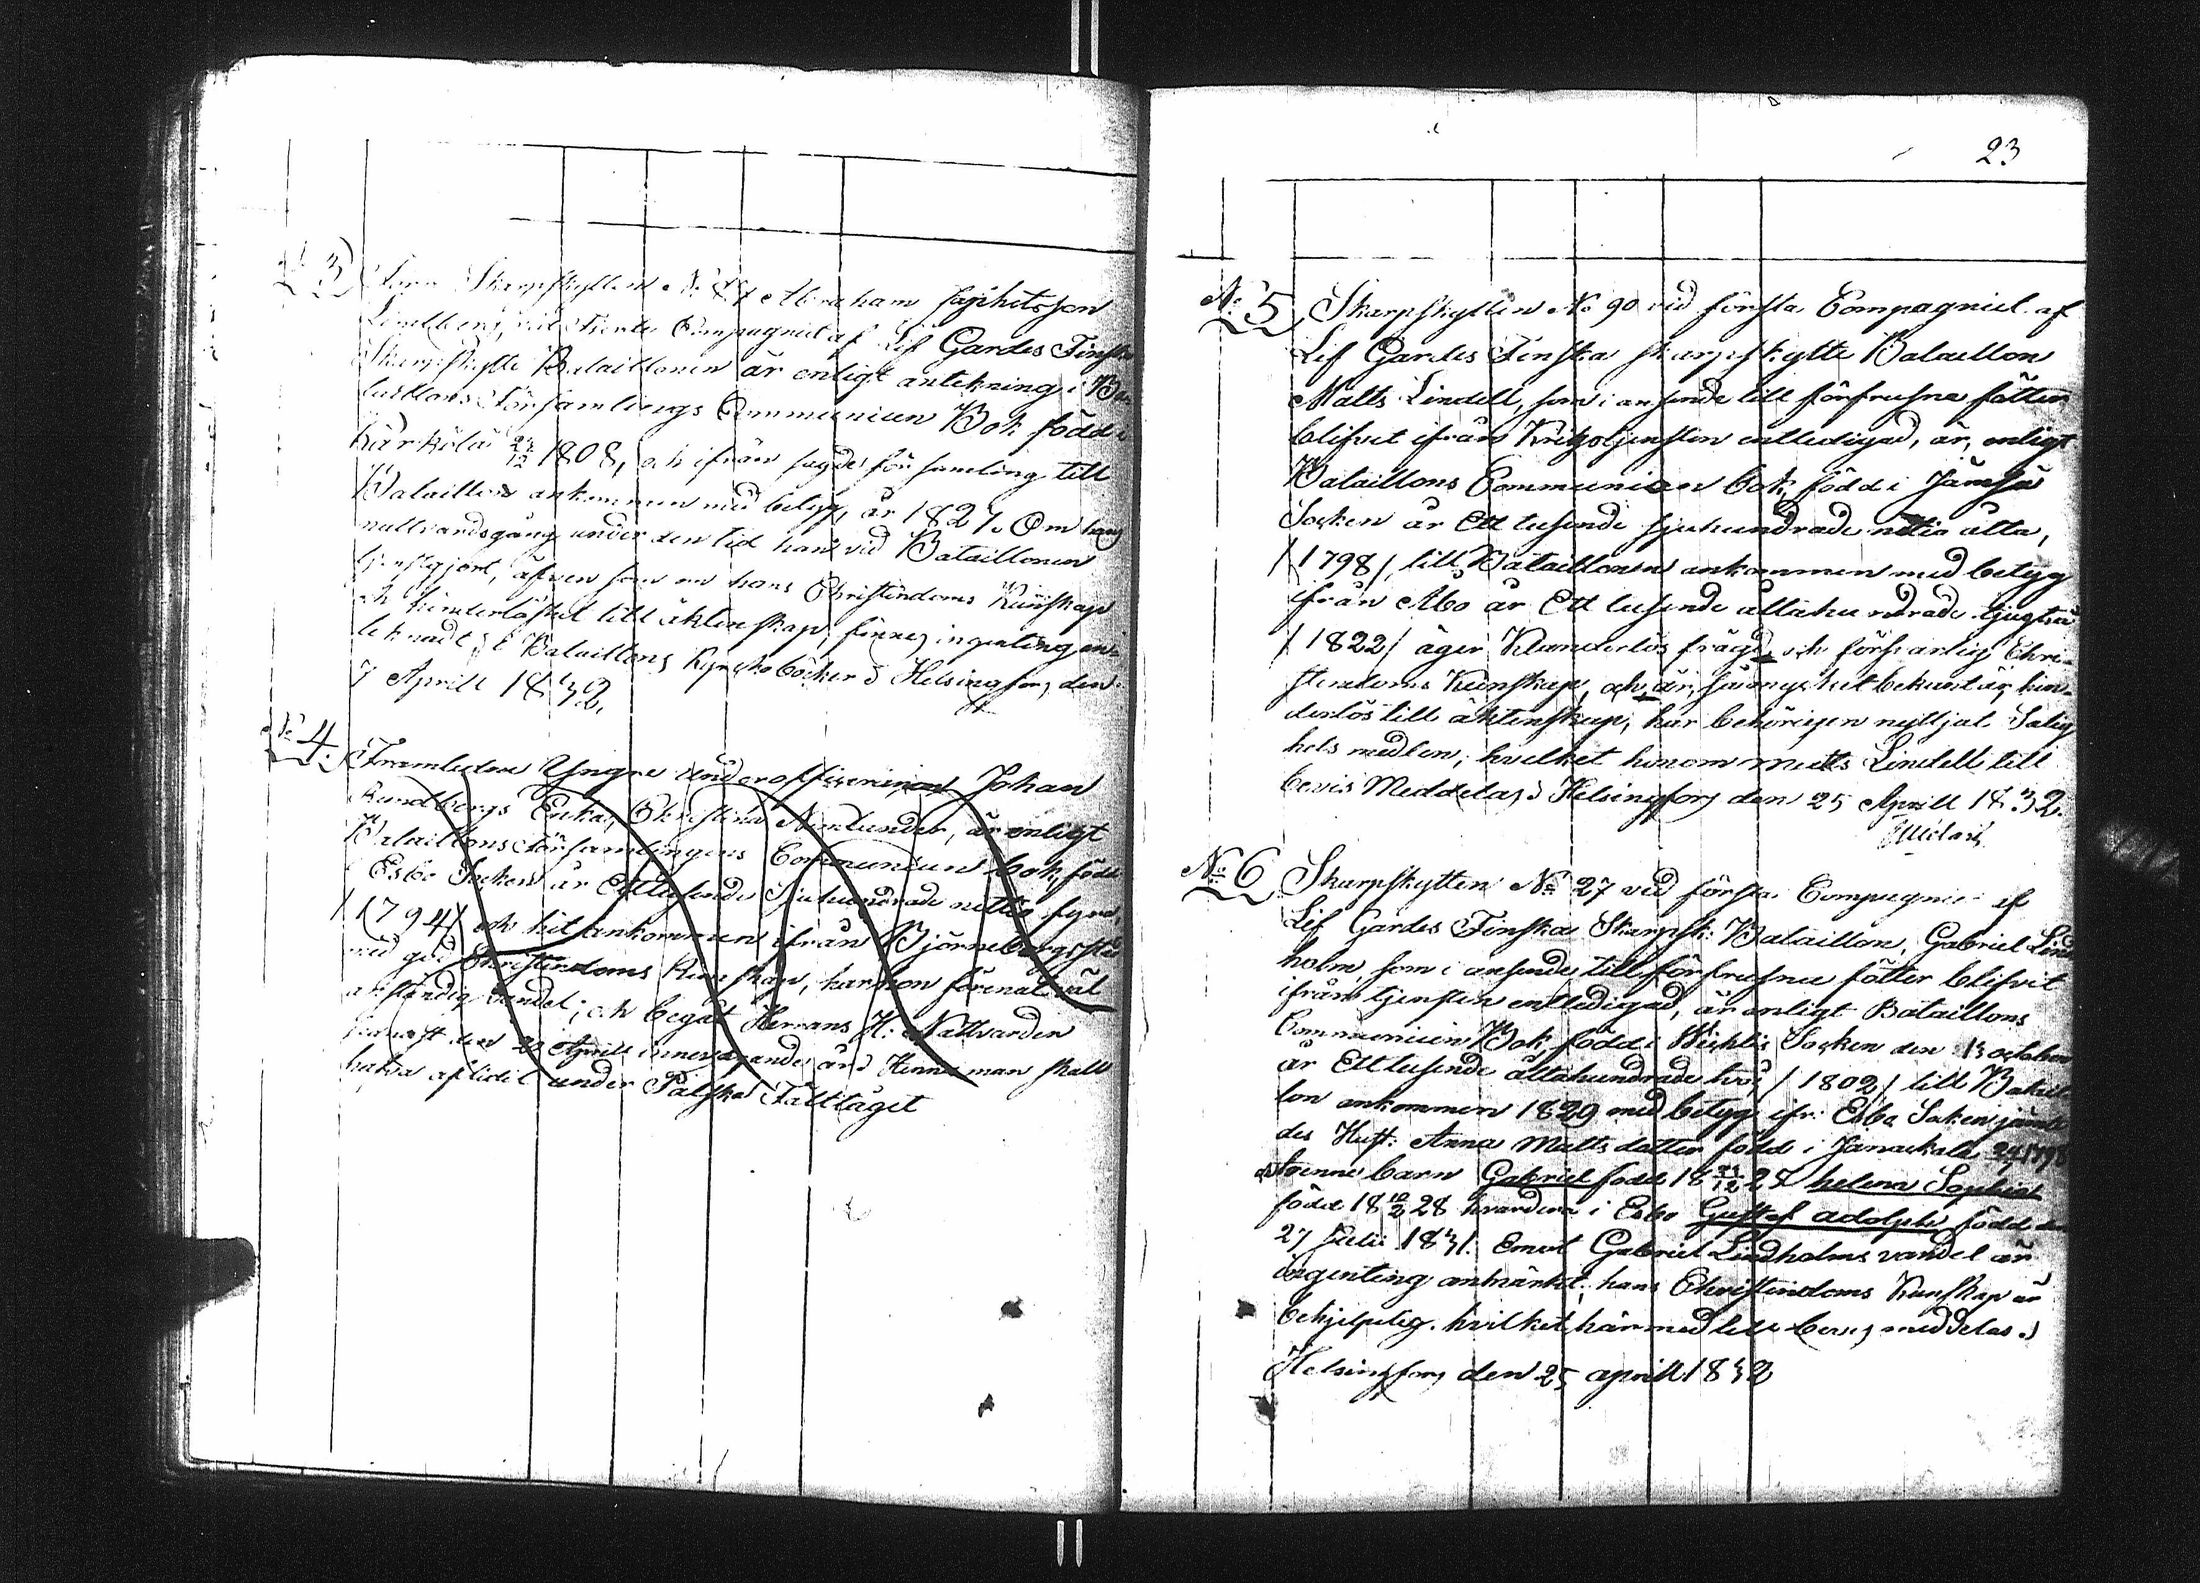 N:o 3
Skarpskytten N:o 87 Abraham
Lindberg, vid Fierde Compagniet af Lif Gardes Finska
Skarpskytte Bataillonen är enligt antekning i Ba
taillons Församlings Communion Bok född i
Kärkölä 24/12 1808, och ifrån sagde församling till
Bataillon ankommen med betyg, år 1827. Om hans
nattvardsgång under den tid han vid Bataillonen
tjenstgjort, äfven som om hans Christendoms Kunskap
och hinderlöshet till äktenskap, finnes ingenting an-
teknadt, i Bataillons Kyrckoböcker d Helsingfors, den
7 Aprill 1832.
N:o 4.
Framledne Yngre Underofficeraren Johan
Sundbergs Enka, Christina Nimlunder, är enligt
Bataillons Församlingens Communion bok, född
i Esbo Socken år Ettusende Sjuhundrade nettio fyra,
/1794/ och hit ankommen ifrån Björneborgs
med god Christendoms Kunskap, har hon förenat väl
anständig vandel; och begåt Herrans H: Nattvarden
sednast den 22 Aprill innevarande år. Hennes man skall
hafva aflidit under Pålska Fälttåget
23
N:o 5
Skarpskytten No 90 vid första Compagniet af
Lif Gardes Finska skarpskytte Bataillon
Matts Lindell, som i anseende till förfrusna fötter
blifvit ifrån Krigstjensten entledigad, är, enligt
Bataillons Communion bok, född i Jämsä
Socken år Ett tusende sjuhundrade nitio åtta,
/1798/, till Bataillonen ankommen med betyg
ifrån Åbo år Ett tusende åttahundrade tjugtvå
/1822/ äger Klanderlös frägd, och försvarlig Chri-
stendoms Kunskap, och är, såvidt bekant är, hin-
derlös till äktenskap, har behörigen nyttjat Salig
hets medlen; hvilket honom Matts Lindell till
bevis Meddelas, d Helsingfors den 25 Aprill 1832.
N:o 6
Skarpskytten No 27 vid första Compagniet af
Lif Gardes Finska Skarpsk: Bataillon, Gabriel Lind
holm, som i anseende till förfrusne fötter blifvit
ifrån tjensten entledigad, är enligt Bataillons
Communion Bok född i Wichtis Socken den 13 october
år Ettusende åttahundrade två, /1802/ till Batail
lon ankommen 1829 med betyg ifr: Esbo Socken jämte
des Hust: Anna Matts dotter född i Janackala
och trenne barn Gabriel född 18 27 helena Sophia
född 18 10/2 28 hvardera i Esbo Gustaf adolph, född den
27 Julii 1831. Emot Gabriel Lindholms vandel är
ingenting anmärkt; hans Christendoms Kunskap är
behjelpelig. hvilket härmed till bevis meddelas. d
Helsingfors den 25 aprill 1832